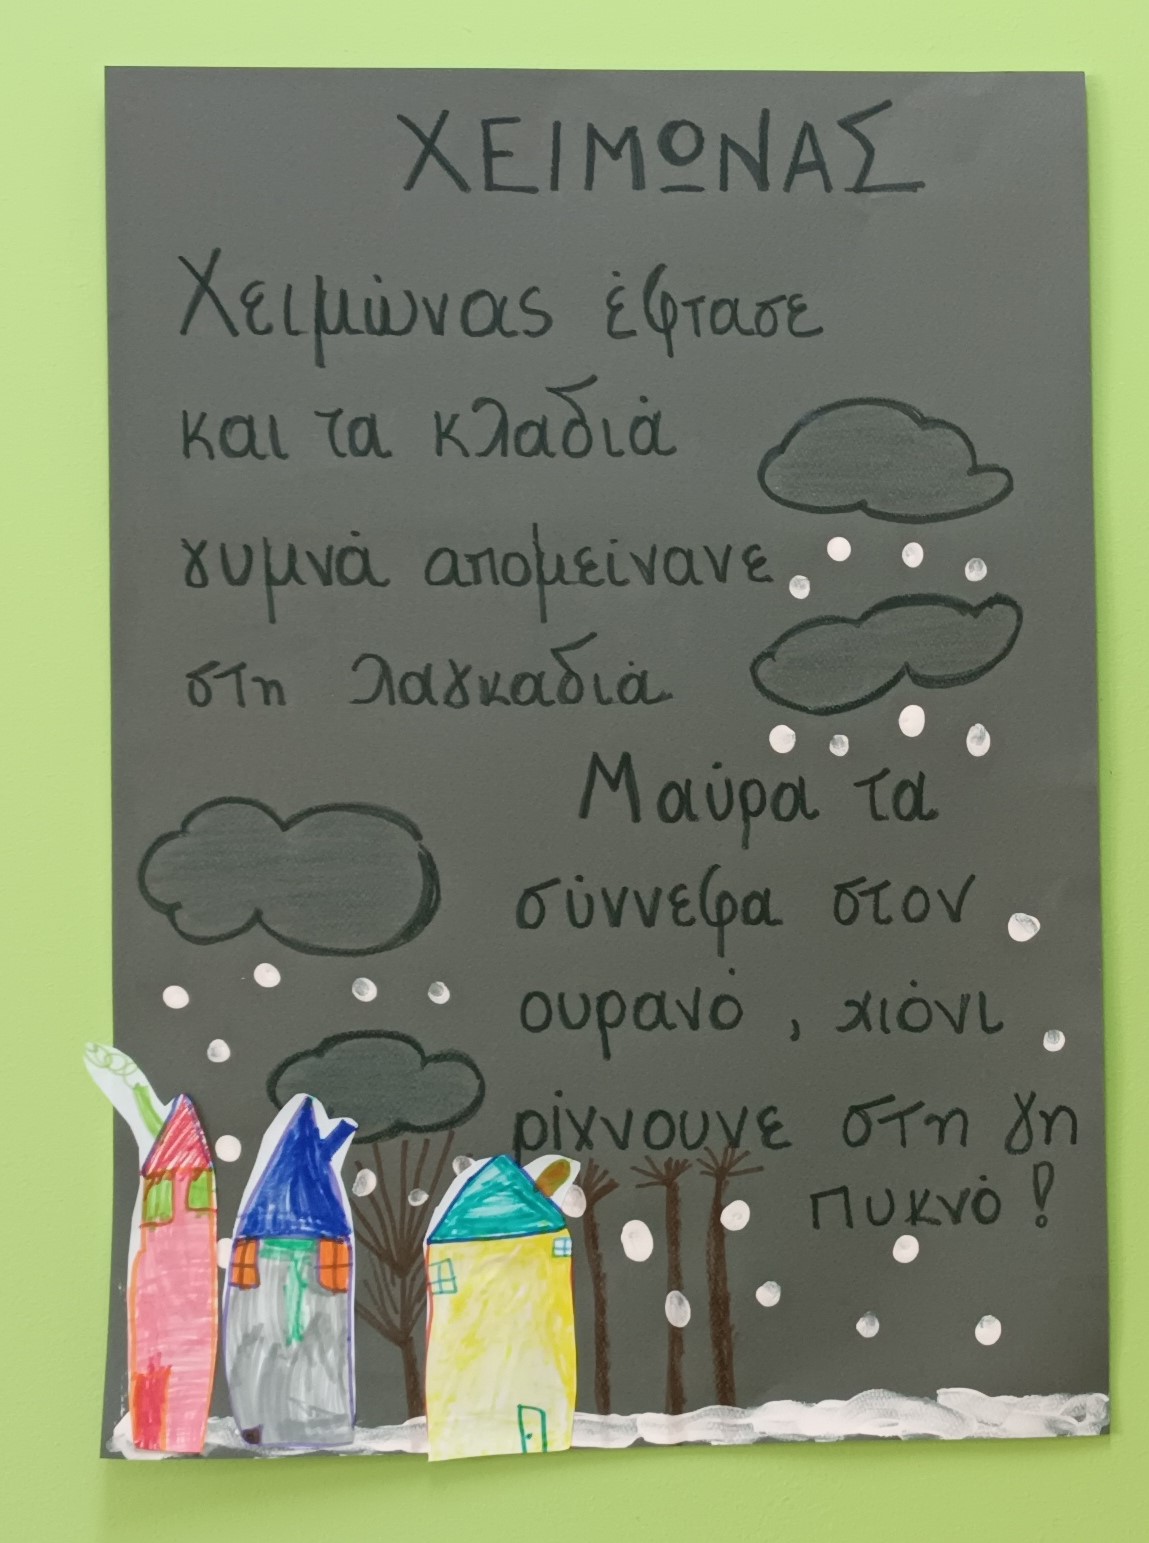 ΧΕΙΜΩΝΑΣ
Χειμώνας έφτασε
και τα κλαδιά
γυμνά απομείνανε
στη λαγκαδιά
Μαύρα τα
σύννεφα στον
ουρανό , χιόνι
ρίχνουνε στη γη
πυκνό !